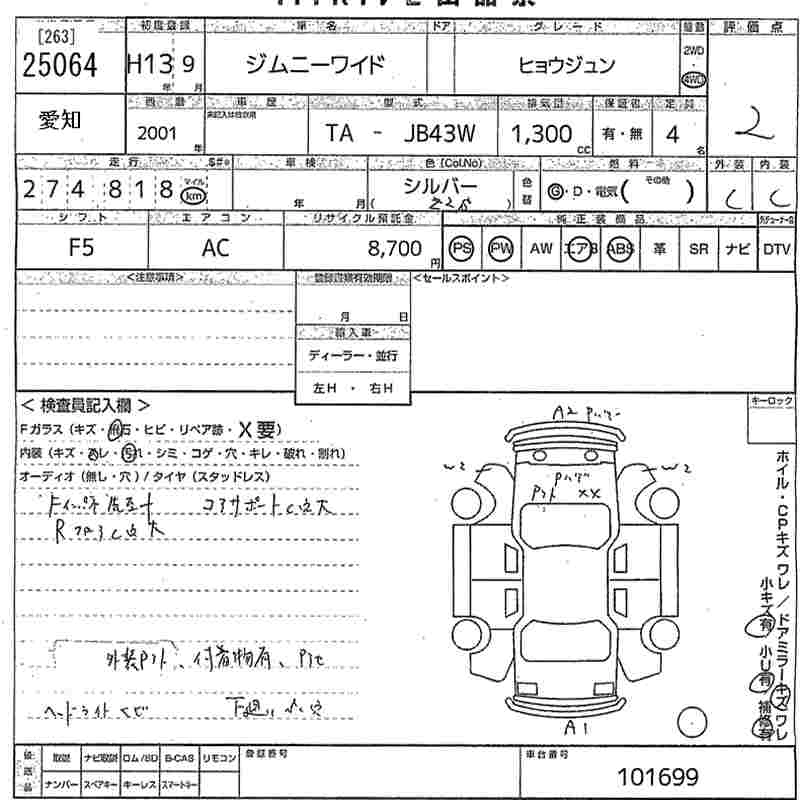 [263]
25064
愛知
初度登録
H13 年 9 月
西暦
2001 年
車名
ジムニーワイド
ドア
グレード
ヒョウジュン
駆動
2WD
4WD
評価点
2
車歴
未記入は自家用
型式
TA - JB43W
排気量
1,300 cc
保証書
有・無
定員
4 名
走行
274818 マイル km
車検
年 月
色 (Col.No)
シルバー
( Z2S )
色替
燃料
G・D・電気( その他 )
外装
C
内装
C
シフト
F5
エアコン
AC
リサイクル預託金
8,700 円
純正装備品
PS PW AW エアB ABS 革 SR ナビ DTV
<注意事項>
登録書類有効期限
月 日
輸入車
ディーラー・並行
左H ・ 右H
<セールスポイント>
<検査員記入欄>
Fガラス(キズ・飛石・ヒビ・リペア跡・X要)
内装(キズ・スレ・汚れ・シミ・コゲ・穴・キレ・破れ・割れ)
オーディオ(無し・穴)/タイヤ(スタッドレス)
コアサポートC点大
外装Pハト、付着物有、
ヘッドライト
下廻り 小穴
キーロック
A2
W2
W2
XX
A1
ホイル・CPキズ ワレ/ドアミラーキズ ワレ
小キズ有 小U有 補修有
後送品
取説 ナビ取説 ロム/BD B-CAS リモコン
ナンバー スペアキー キーレス スマートキー
登録番号
車台番号
101699